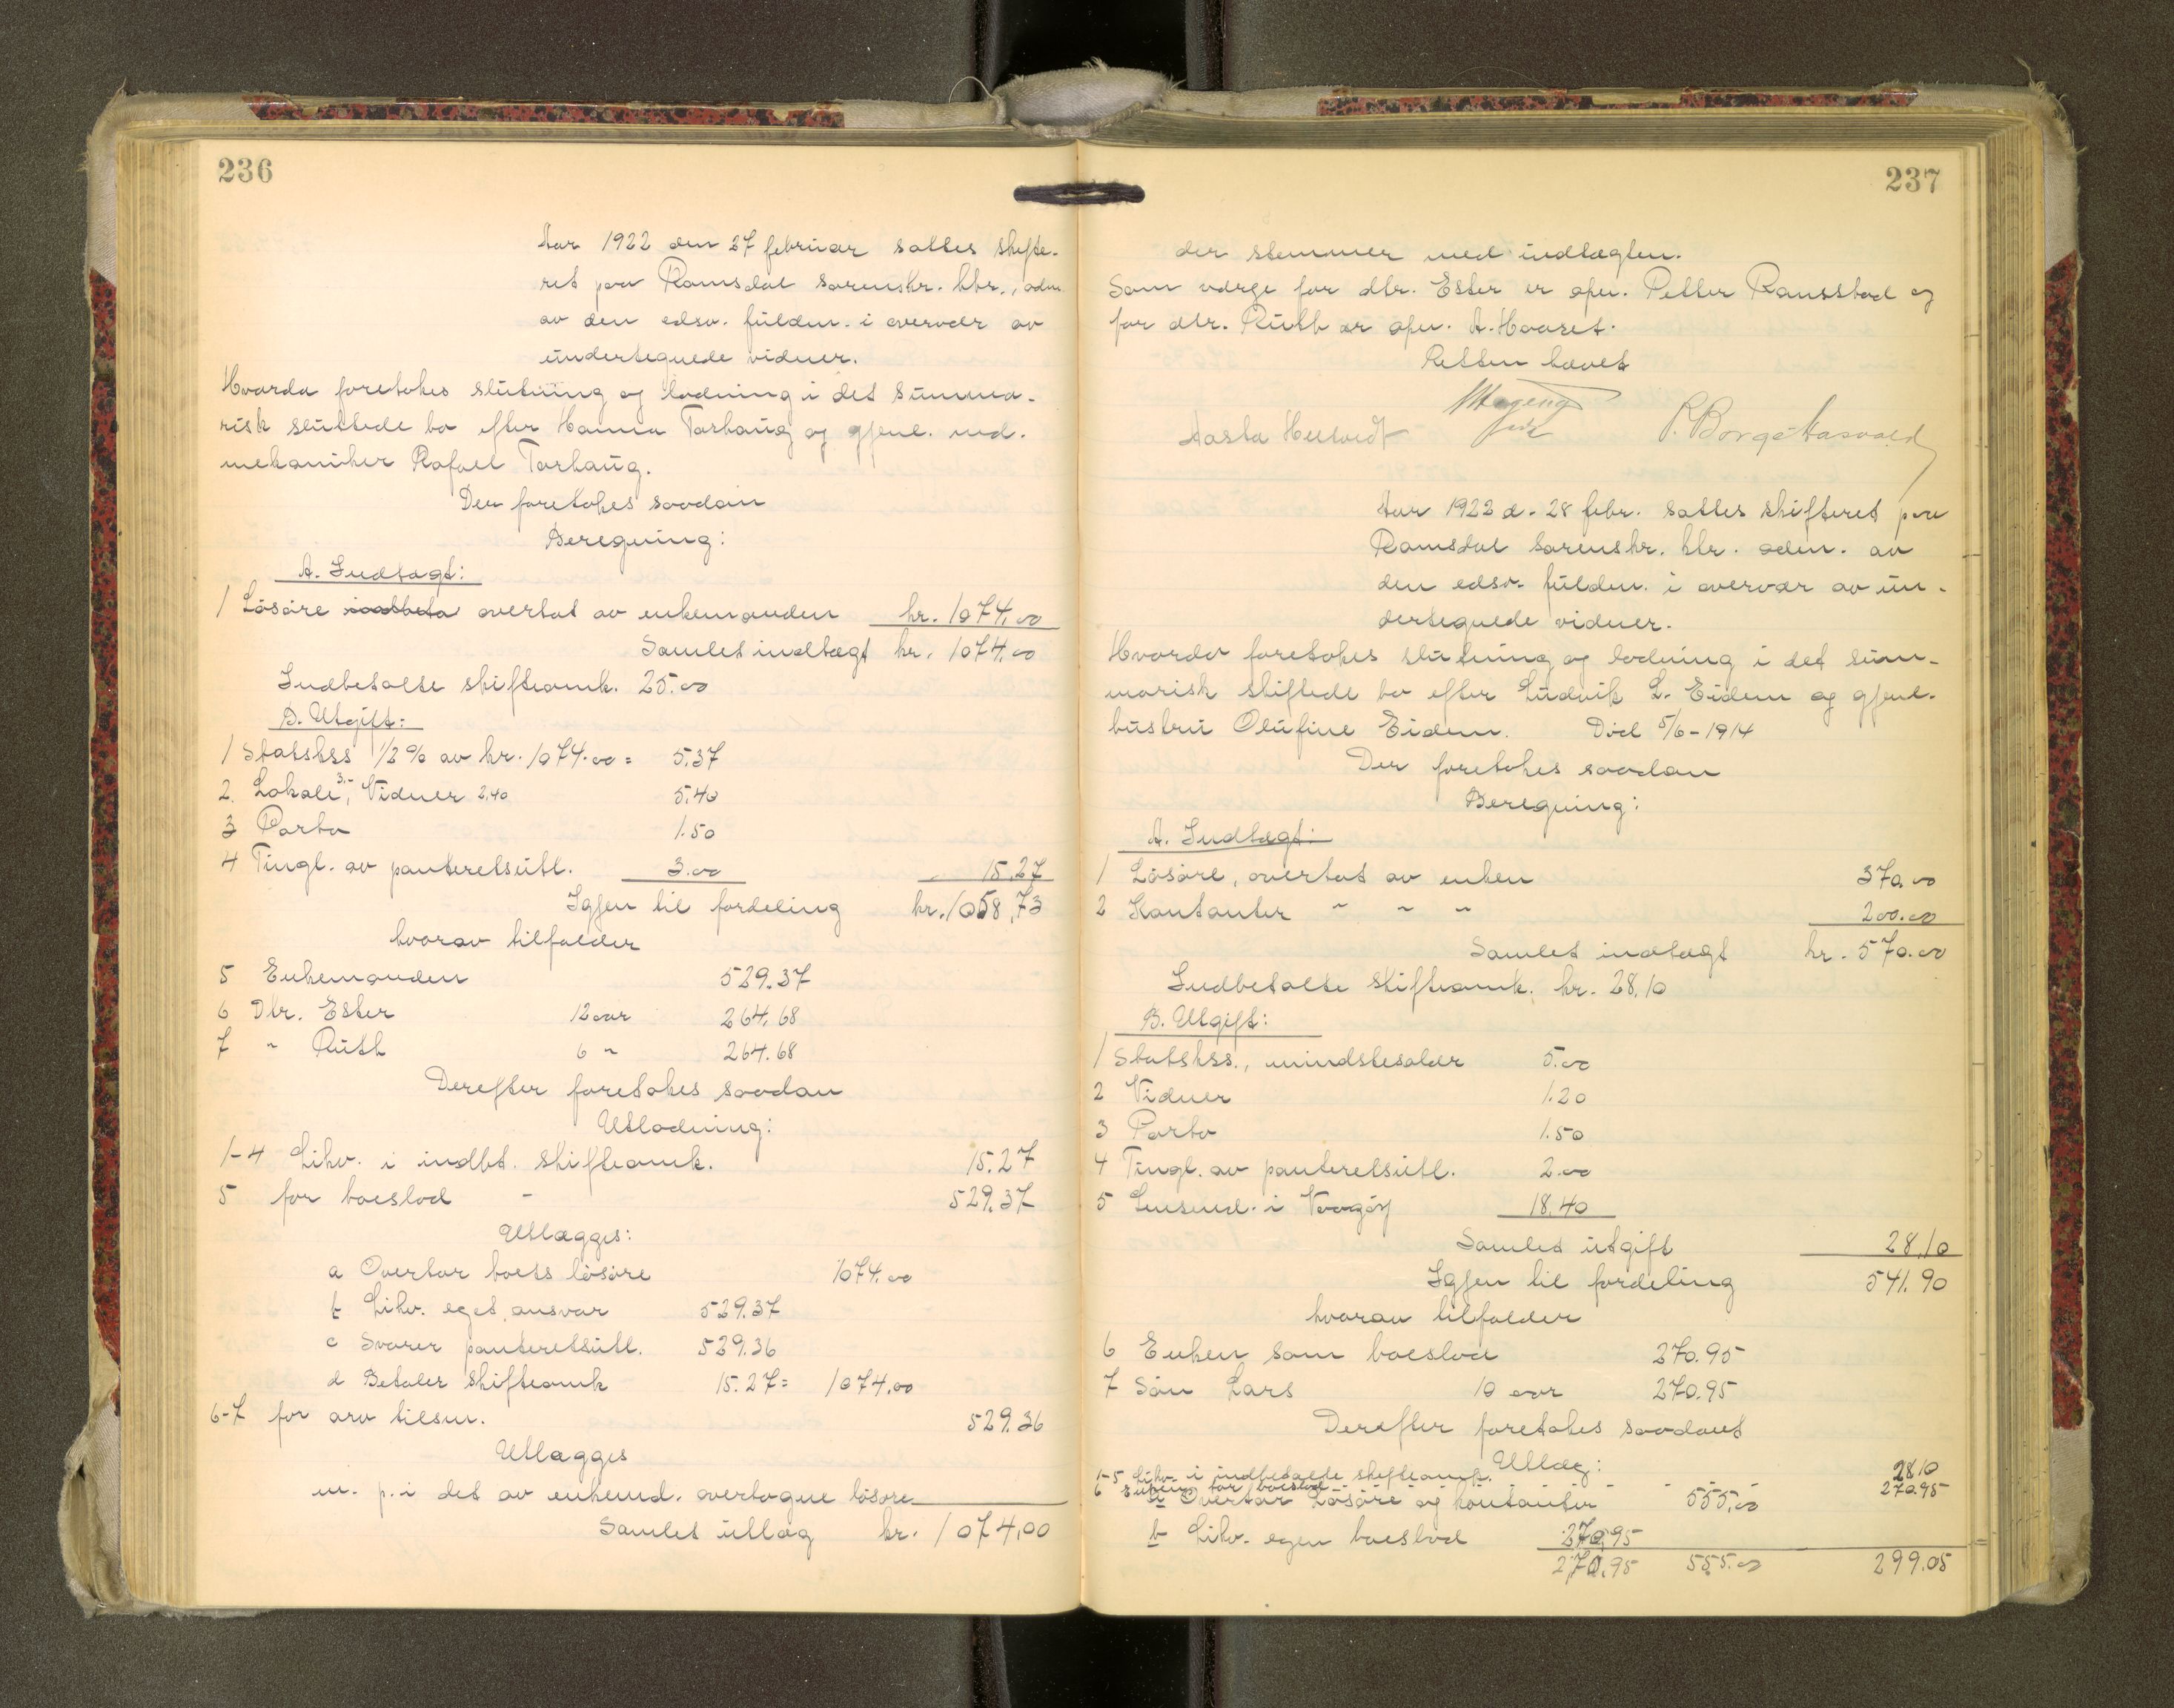 236
Aar 1922 den 27 februar sattes skifte-
ret paa Romsdal sorenskr. ktr., adm.
av den edsv. fuldm. i overvær av
undertegnede vidner.
Hvorda foretokes slutning og lodning i det summa-
risk sluttede bo efter Hanna Torhaug og gjenl. md.
mekaniker Rafael Torhaug.
Der foretokes saadan
Beregning:
A. Indtægt:
1 Løsøre overtat av enkemanden kr. 1074.00
Samlet indtægt kr. 1074.00
Indbetalte skifteomk. 25.00
B. Utgift:
1 Statskss 1/2 % av kr. 1074.00 = 5.37
2. Lokale 3,-, Vidner 2,40 5.40
3 Porto 1.50
4 Tingl. av panteretsutl. 3.00 15.27
Igjen til fordeling kr. 1058,73
hvorav tilfalder
5 Enkemanden 529.37
6 Dtr. Ester 12 aar 264.68
7 " Ruth 6 " 264.68
Derefter foretokes saadan
Utlodning:
1-4 Likv. i indbt. skifteomk. 15.27
5 for boeslod - 529.37
Utlægges:
a Overtar boets løsøre 1074.00
b Likv. eget ansvar 529.37
c Svarer panteretsutl. 529.36
d Betaler skifteomk 15.27 = 1074.00
6-7 for arv tilsm. 529.36
Utlægges
m. p. i det av enkemd. overtagne løsøre
Samlet utlæg kr. 1074,00
237
der stemmer med indtægten.
Som værge for dtr. Ester er opn. Petter Raustad og
for dtr. Ruth er opn. A. Haaset.
Retten hævet
Aasta
Aar 1922 d. 28 febr. sattes skifteret paa
Romsdal sorenskr. ktr. adm. av
den edsv. fuldm. i overvær av un-
dertegnede vidner.
Hvorda foretokes slutning og lodning i det sum-
marisk skiftede bo efter Ludvik L. Eidem og gjenl.
hustru Olufine Eidem. Död 5/6-1914
Der foretokes saadan
Beregning:
A. Indtægt:
1 Løsøre, overtat av enken 370.00
2 Kontanter " " " 200.00
Samlet indtægt kr. 570.00
Indbetalte skifteomk. kr. 28,10
B. Utgift:
1 Statskss., mindstesalær 5.00
2 Vidner 1.20
3 Porto 1.50
4 Tingl. av panteretsutl. 2.00
5 Lensmd. i 18.40
Samlet utgift 28,10
Igjen til fordeling 541.90
hvorav tilfalder
6 Enken som boeslod 270.95
7 Søn Lars 10 aar 270.95
Derefter foretokes saadant
Utlæg:
1-5 Likv. i indbetalte skifteomk. 28.10
6 Enken for boeslod 270.95
a Overtar Løsøre og kontanter 555.00
b Likv. egen boeslod 270,95
270.95 555.00 299.05